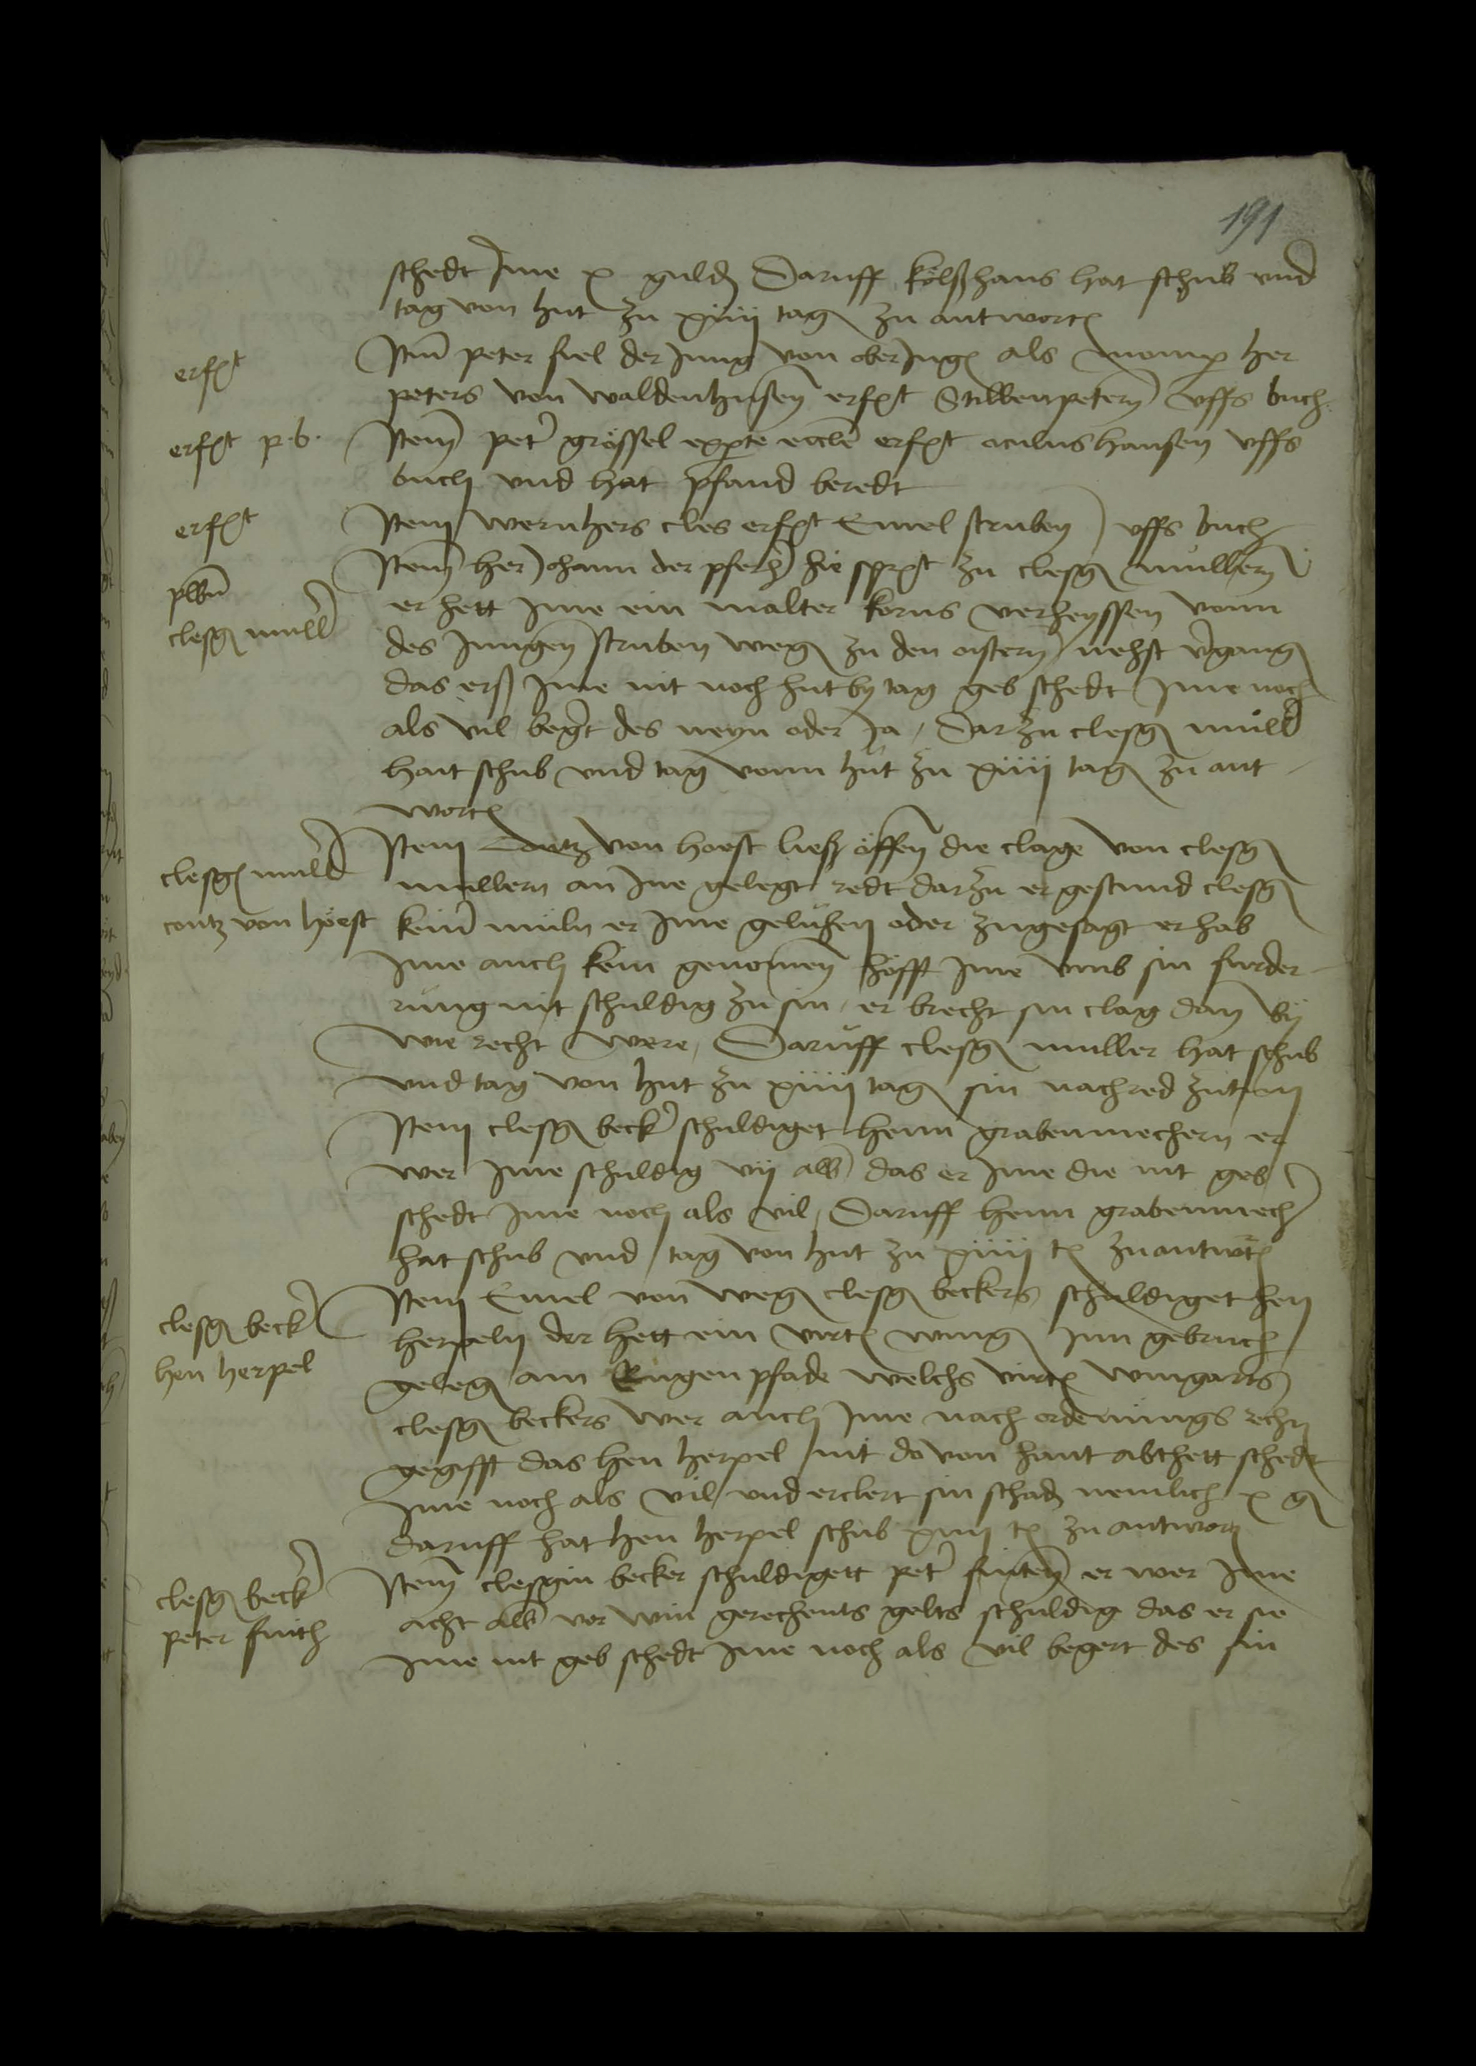 191
schedt Ime x guld Daruff kölßhans hat schub und
tag von hut zu xiiij tag zu antwort
erfgt
Item peter fiel der Jung von ober Ing als momp her
peters von waldenhusen erfgt Stillenpetern uffs buch
erfgt p. b.
Item peter grössel ex parte eccle erfgt oculushansen uffs
buch und hat pfand beredt
erfgt
Item wernhers cles erfgt Emel struben uffs buch
plbn
clesg mull
Item her Johann der pferh hie sprgt zu clesg mullern
er hett Ime ein malter korns verheyssen vonn
des Jungen struben weg zu den ostern nehst vgang
das erß Ime nit noch hut by tag geb schedt Ime noch
als vil begt des neyn oder Ja, Darzu clesg muller
hait schub und tag vonn hut zu xiiij tag zu ant
wort
clesg muller
contz von hoest
Item Contz von hoest ließ öffen die clage von clesg
mullern an Ine gelegt redt darzu er gestund clesg
keinr muln er Ime geluhen oder zugesagt er hab
Ime auch kein genomen hofft Ime umb sin furder
rung nit schuldig zu sin er brecht sin clag dan by
wie recht were, Daruff clesg muller hat schub
und tag von hut zu xiiij tag sin nachred zuthun
Item clesg beckr schuldiget henn grabenmechern er
wer Ime schuldig vij alb das er Ime die nit geb
schedt Ime noch als vil, Daruff henn grabenmech
hat schub und tag von hut zu xiiij t zu antwt
clesg beckr
hen herpel
Item Emel von weg clesg beckers schuldiget hen
herpeln der hett ein virt wing Inn gebruch
geleg am Engenpfade welchs virt wingarts
clesg beckers wer auch Ime nach ordenungs rechn
gegifft das hen herpel nit do von hant abthett schedt
Ime noch als vil und erclert sin schad nemlich x g
daruff hat hen herpel schub xiiij t zu antwort
clesg beckr
peter finth
Item clesgin becker schuldigett petr finten er wer Ime
acht alb vor win gerechents gelts schuldig das er sie
Ime nit geb schedt Ime noch als vil begert des sin